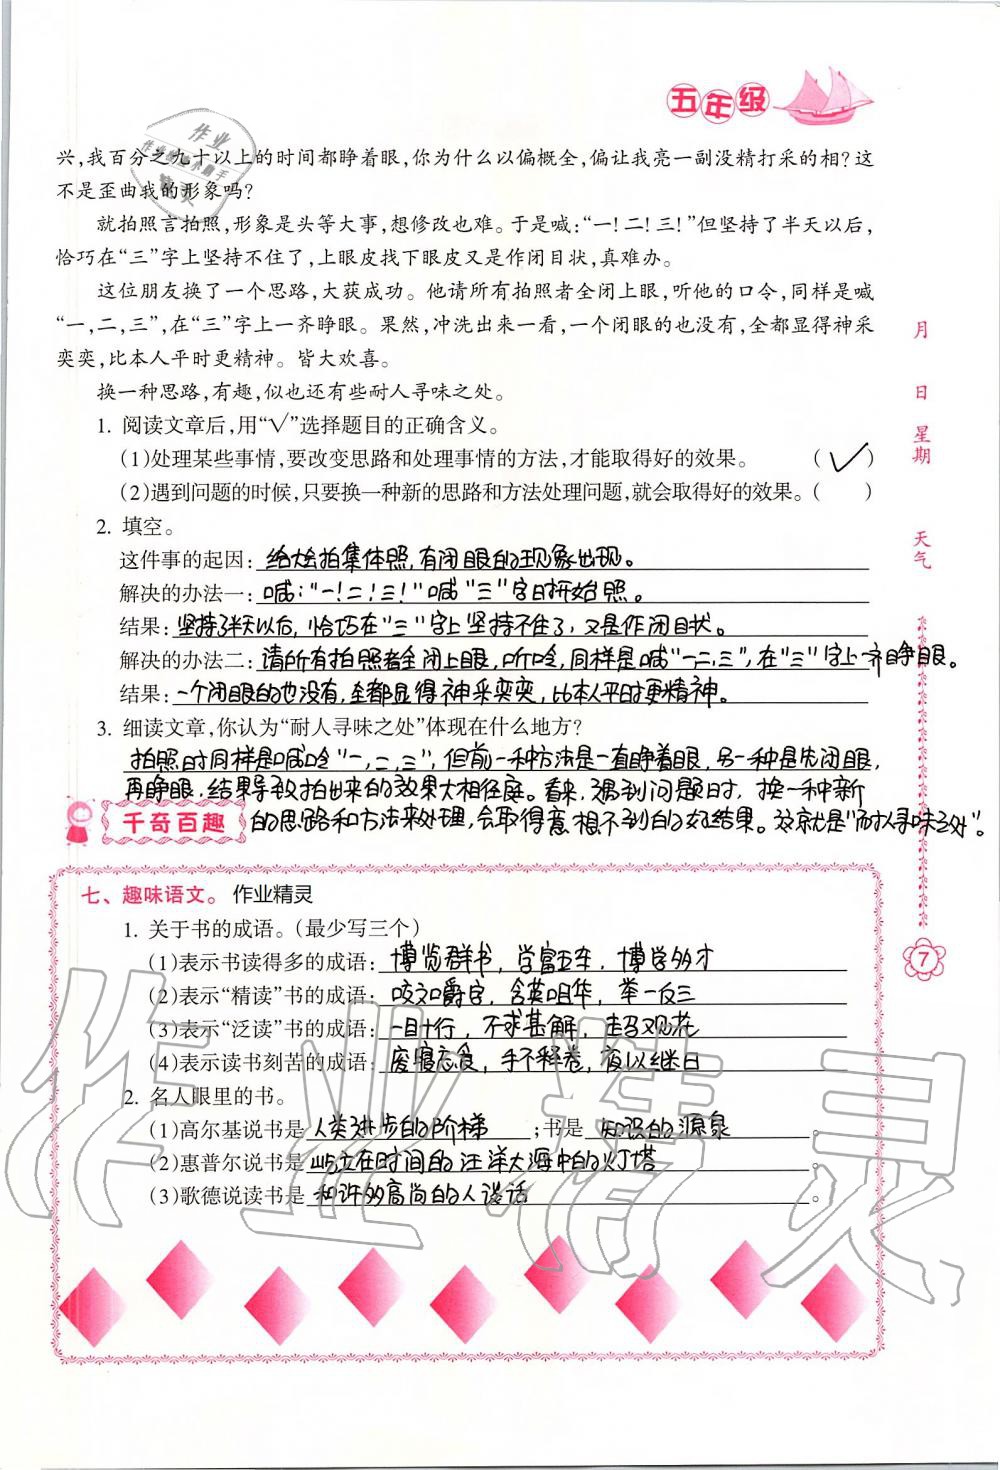 五年级
兴,我百分之九十以上的时间都睁着眼,你为什么以偏概全,偏让我亮一副没精打采的相?这
不是歪曲我的形象吗?
就拍照言拍照,形象是头等大事,想修改也难。于是喊:“一!二!三!”但坚持了半天以后,
恰巧在“三”字上坚持不住了,上眼皮找下眼皮又是作闭目状,真难办。
这位朋友换了一个思路,大获成功。他请所有拍照者全闭上眼,听他的口令,同样是喊
“一,二,三”,在“三”字上一齐睁眼。果然,冲洗出来一看,一个闭眼的也没有,全都显得神采
奕奕,比本人平时更精神。皆大欢喜。
换一种思路,有趣,似也还有些耐人寻味之处。
1. 阅读文章后,用“√”选择题目的正确含义。
(1)处理某些事情,要改变思路和处理事情的方法,才能取得好的效果。 (√)
(2)遇到问题的时候,只要换一种新的思路和方法处理问题,就会取得好的效果。( )
2. 填空。
这件事的起因:给大会拍集体照,有闭眼的现象出现。
解决的办法一:喊:“一!二!三!”喊“三”字时开始照。
结果:坚持了半天以后,恰巧在“三”字上坚持不住了,又是作闭目状。
解决的办法二:请所有拍照者全闭上眼,听口令,同样是喊“一,二,三”,在“三”字上一齐睁眼。
结果:一个闭眼的也没有,全都显得神采奕奕,比本人平时更精神。
3. 细读文章,你认为“耐人寻味之处”体现在什么地方?
拍照时同样是喊口令“一,二,三”,但前一种方法是一直睁着眼,另一种是先闭眼,
再睁眼,结果导致拍出来的效果大相径庭。看来,遇到问题时,换一种新
的思路和方法来处理,会取得意想不到的好结果。这就是“耐人寻味之处”。
千奇百趣
七、趣味语文。 作业精灵
1. 关于书的成语。(最少写三个)
(1)表示书读得多的成语:博览群书,学富五车,博学多才
(2)表示“精读”书的成语:咬文嚼字,含英咀华,举一反三
(3)表示“泛读”书的成语:一目十行,不求甚解,走马观花
(4)表示读书刻苦的成语:废寝忘食,手不释卷,夜以继日
2. 名人眼里的书。
(1)高尔基说书是人类进步的阶梯;书是知识的源泉。
(2)惠普尔说书是屹立在时间的汪洋大海中的灯塔。
(3)歌德说读书是和许多高尚的人谈话。
月
日
星期
天气
7
作业精灵